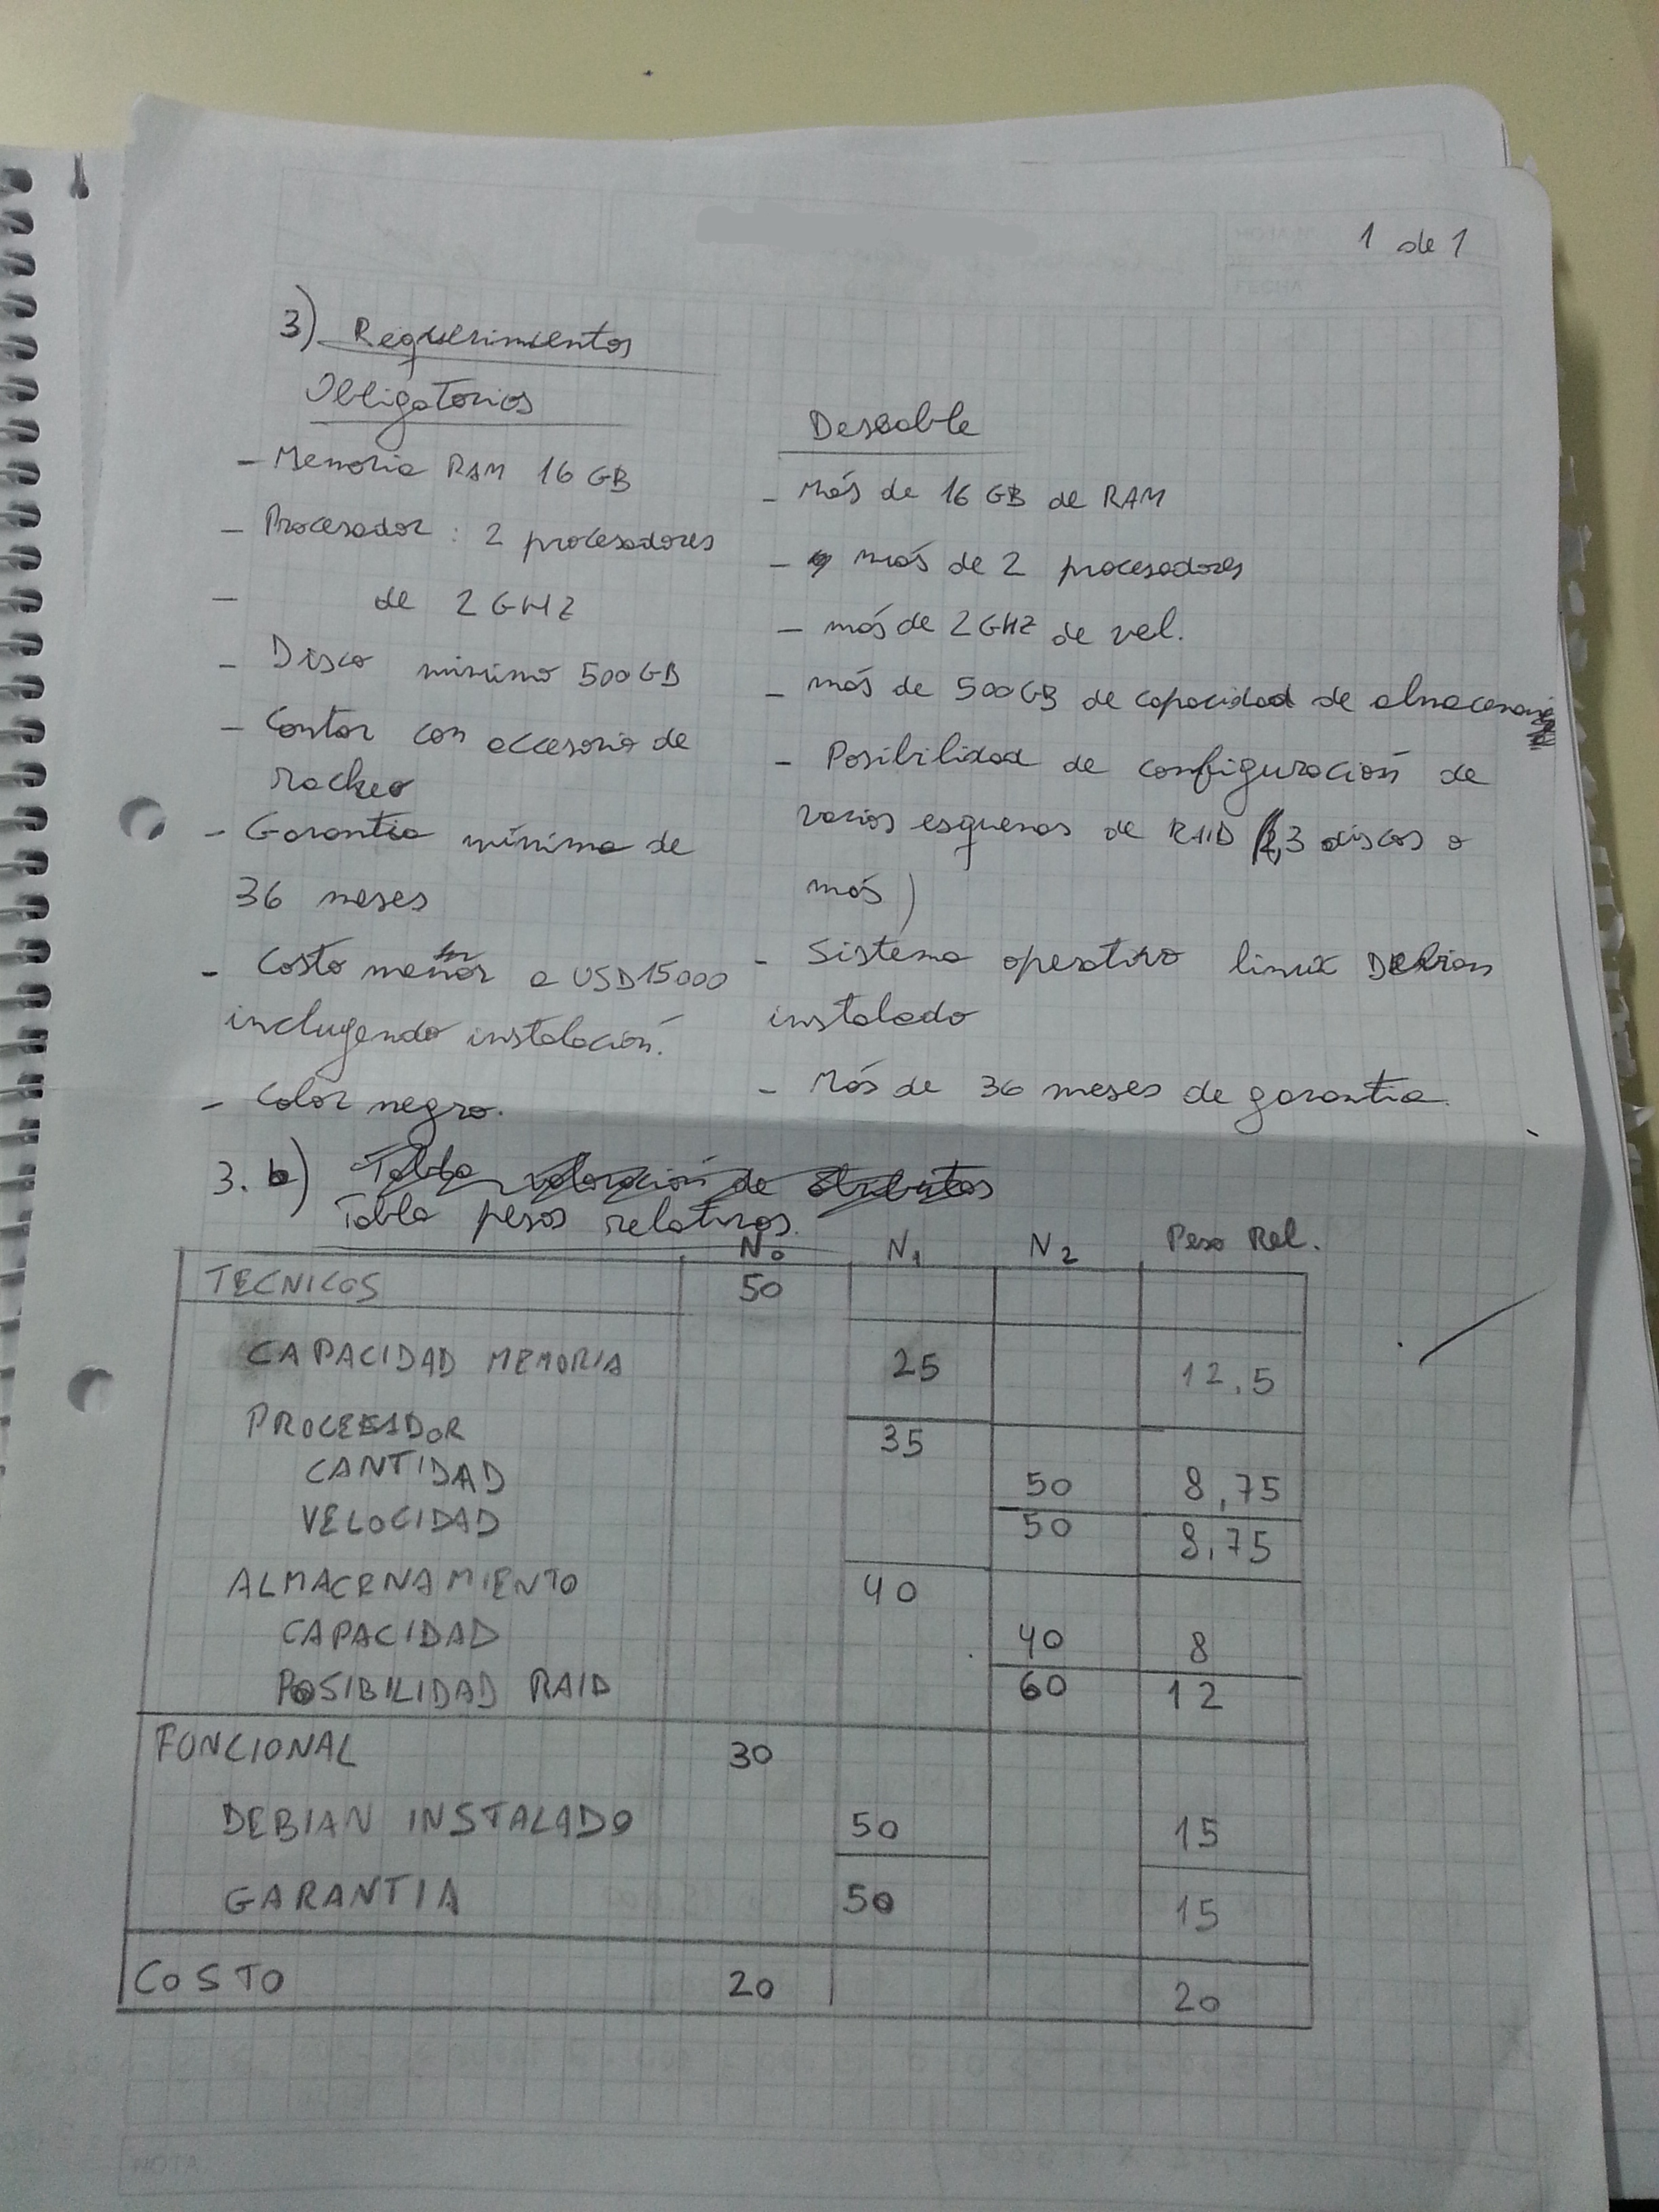 1 de 1
3) Requerimientos
Obligatorios
- Memoria RAM 16 GB
- Procesador: 2 procesadores
- de 2 GHZ
- Disco minimo 500GB
- Contar con accesorio de
rackeo
- Garantia mínima de
36 meses
- Costo menor a USD15000
incluyendo instalación.
- Color negro.
Deseable
- Más de 16 GB de RAM
- más de 2 procesadores
- más de 2GHZ de vel.
- más de 500GB de capacidad de
- Posibilidad de configuración de
varios esquemas de RAID (3 discos o
más)
- Sistema operativo linux Debian
instalado
- Más de 36 meses de garantia.
3. b) Tabla valoración de atributos
Tabla pesos relativos.
N0 N1 N2 Peso Rel.
TECNICOS 50
CAPACIDAD MEMORIA 25 12,5
PROCESADOR 35
CANTIDAD 50 8,75
VELOCIDAD 50 8,75
ALMACENAMIENTO 40
CAPACIDAD 40 8
POSIBILIDAD RAID 60 12
FUNCIONAL 30
DEBIAN INSTALADO 50 15
GARANTIA 50 15
COSTO 20 20
NOTA
FECHA